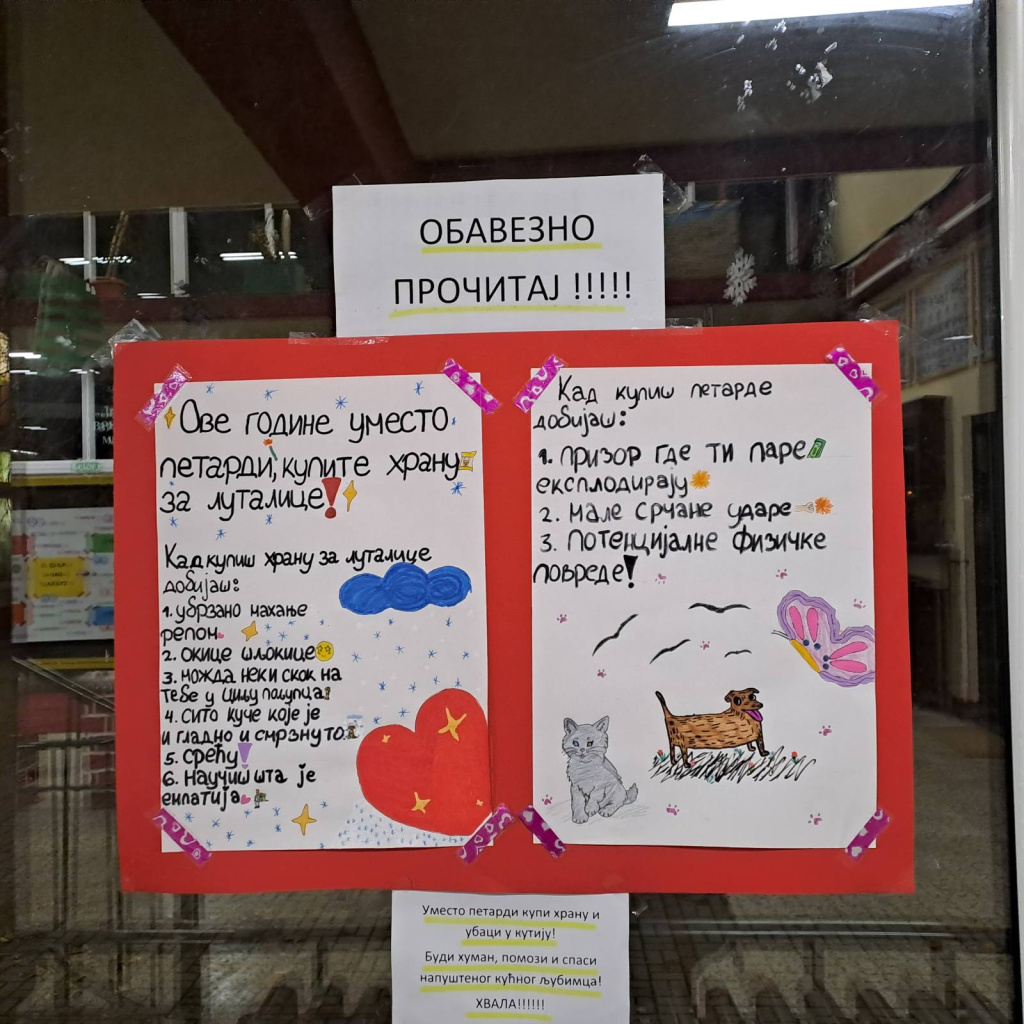 ОБАВЕЗНО
ПРОЧИТАЈ !!!!!
Ове године уместо
петарди, купите храну
за луталице!
Кад купиш храну за луталице
добијаш:
1. убрзано махање
репом
2. окице шљокице
3. можда неки скок на
тебе у циљу пољупца
4. сито куче које је
и гладно и смрзнуто
5. срећу!
6. научиш шта је
емпатија
Кад купиш петарде
добијаш:
1. призор где ти паре
експлодирају
2. мале срчане ударе
3. потенцијалне физичке
повреде!
Уместо петарди купи храну и
убаци у кутију!
Буди хуман, помози и спаси
напуштеног кућног љубимца!
ХВАЛА!!!!!!